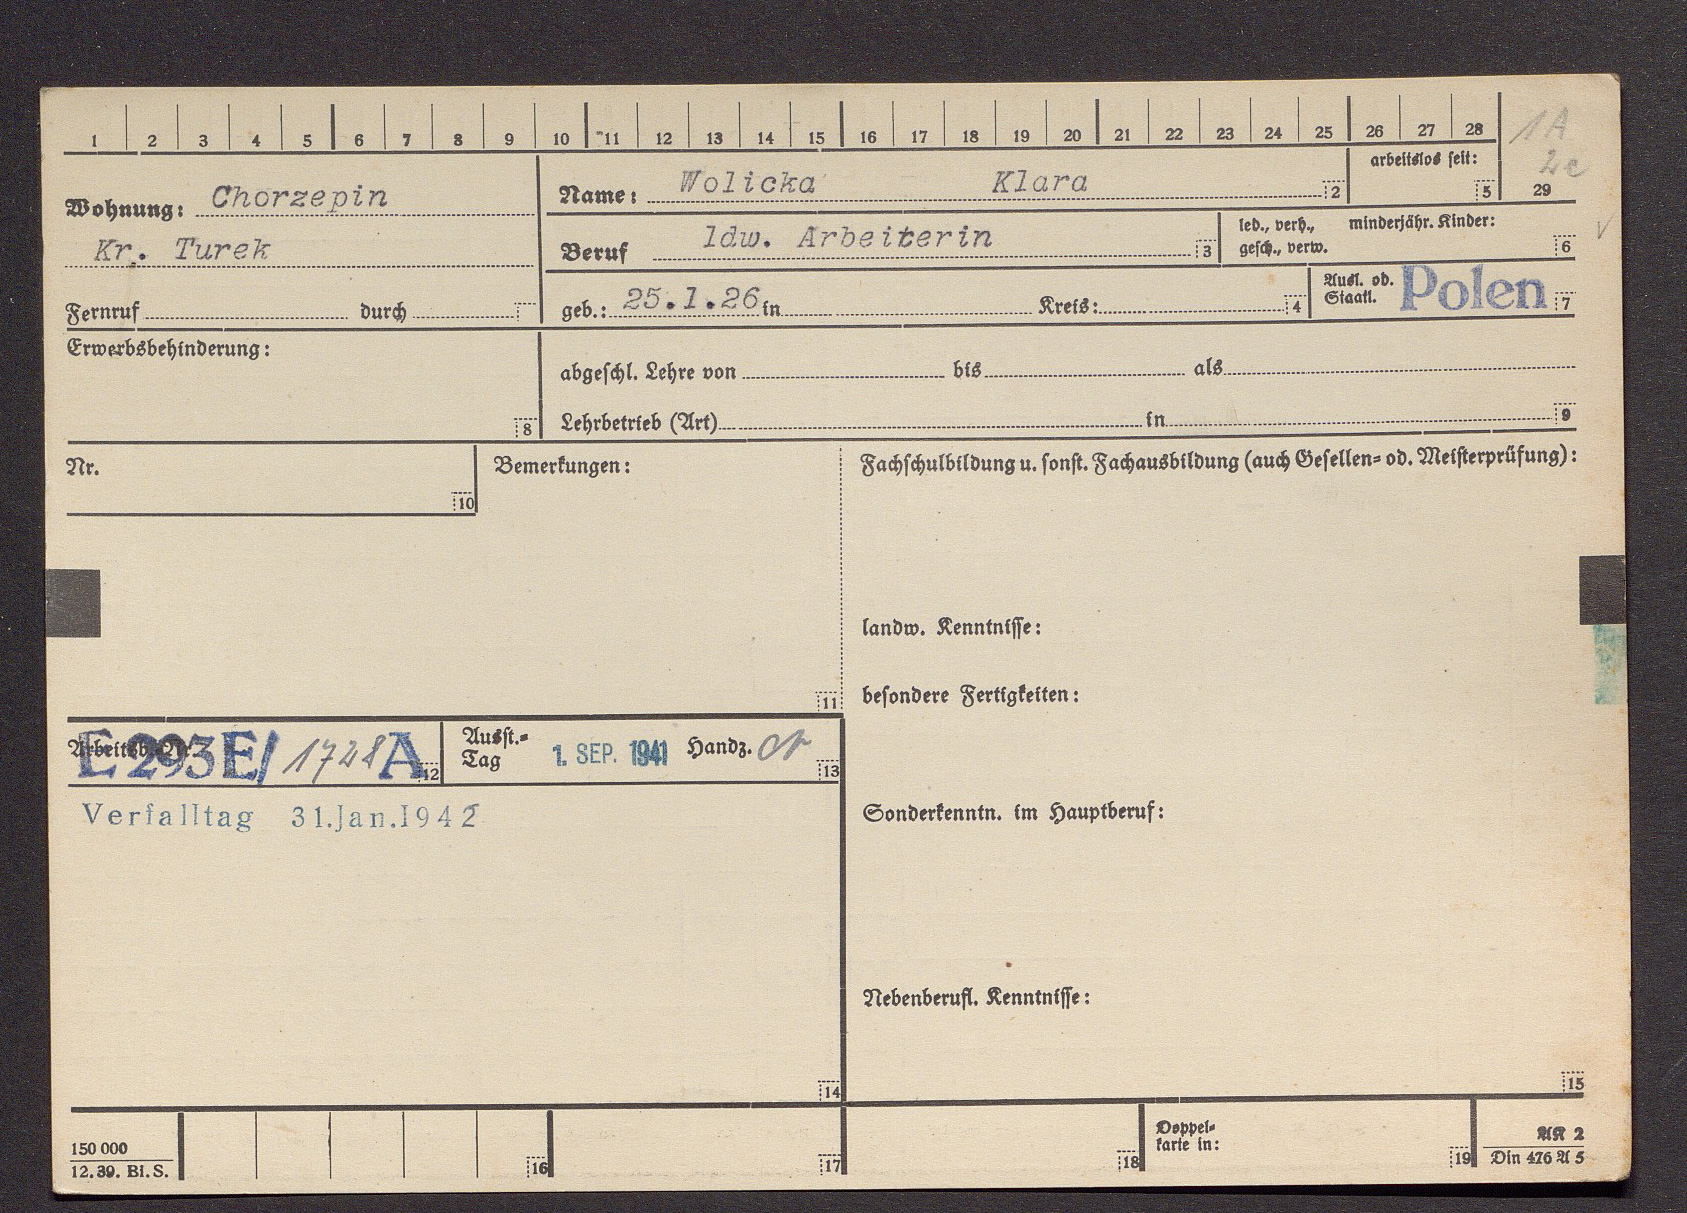 1 2 3 4 5 6 7 8 9 10 11 12 13 14 15 16 17 18 19 20 21 22 23 24 25 26 27 28 29
1A
2c
Wohnung: Chorzepin
Kr. Turek
Fernruf durch
Name: Wolicka Klara 2
arbeitslos seit: 5
Beruf ldw. Arbeiterin 3
led., verh., minderjähr. Kinder:
gesch., verw. 6
geb.: 25.1.26 in Kreis: 4
Ausl. od.
Staatl. Polen 7
Erwerbsbehinderung: 8
abgeschl. Lehre von bis als
Lehrbetrieb (Art) in 9
Nr. 10
Bemerkungen: 11
Fachschulbildung u. sonst. Fachausbildung (auch Gesellen- od. Meisterprüfung):
landw. Kenntnisse:
besondere Fertigkeiten:
Arbeitsb. Nr. E 293 E/ 1728 A 12
Ausst.-
Tag 1. SEP. 1941 Handz. 13
Verfalltag 31.Jan.1942
14
Sonderkenntn. im Hauptberuf:
Nebenberufl. Kenntnisse:
15
150 000
12. 39. Bl. S.
16 17 18
Doppel-
karte in: 19
AK 2
Din 476 A 5